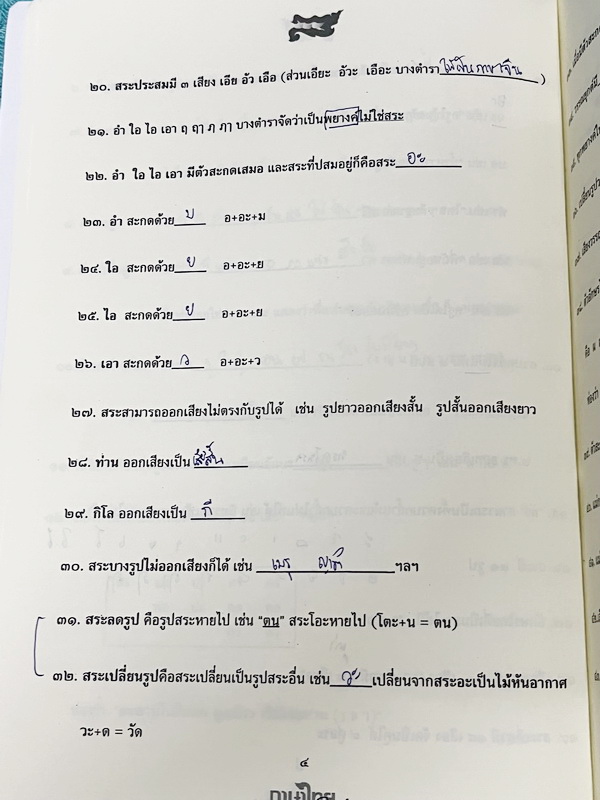 ๒๐. สระประสมมี ๓ เสียง เอีย อัว เอือ (ส่วนเอียะ อัวะ เอือะ บางตำราใช้กับภาษาจีน)
๒๑. อำ ใอ ไอ เอา ฤ ฤๅ ฦ ฦๅ บางตำราจัดว่าเป็นพยางค์ไม่ใช่สระ
๒๒. อำ ใอ ไอ เอา มีตัวสะกดเสมอ และสระที่ปสมอยู่ก็คือสระ อะ
๒๓. อำ สะกดด้วย ม อ+อะ+ม
๒๔. ใอ สะกดด้วย ย อ+อะ+ย
๒๕. ไอ สะกดด้วย ย อ+อะ+ย
๒๖. เอา สะกดด้วย ว อ+อะ+ว
๒๗. สระสามารถออกเสียงไม่ตรงกับรูปได้ เช่น รูปยาวออกเสียงสั้น รูปสั้นออกเสียงยาว
๒๘. ท่าน ออกเสียงเป็น
๒๙. กิโล ออกเสียงเป็น กี
๓๐. สระบางรูปไม่ออกเสียงก็ได้ เช่น เมรุ ญาติ ฯลฯ
๓๑. สระลดรูป คือรูปสระหายไป เช่น "ตน" สระโอะหายไป (โตะ+น = ตน)
๓๒. สระเปลี่ยนรูปคือสระเปลี่ยนเป็นรูปสระอื่น เช่น วะ เปลี่ยนจากสระอะเป็นไม้หันอากาศ
วะ+ด = วัด
๔
ภาษาไทย